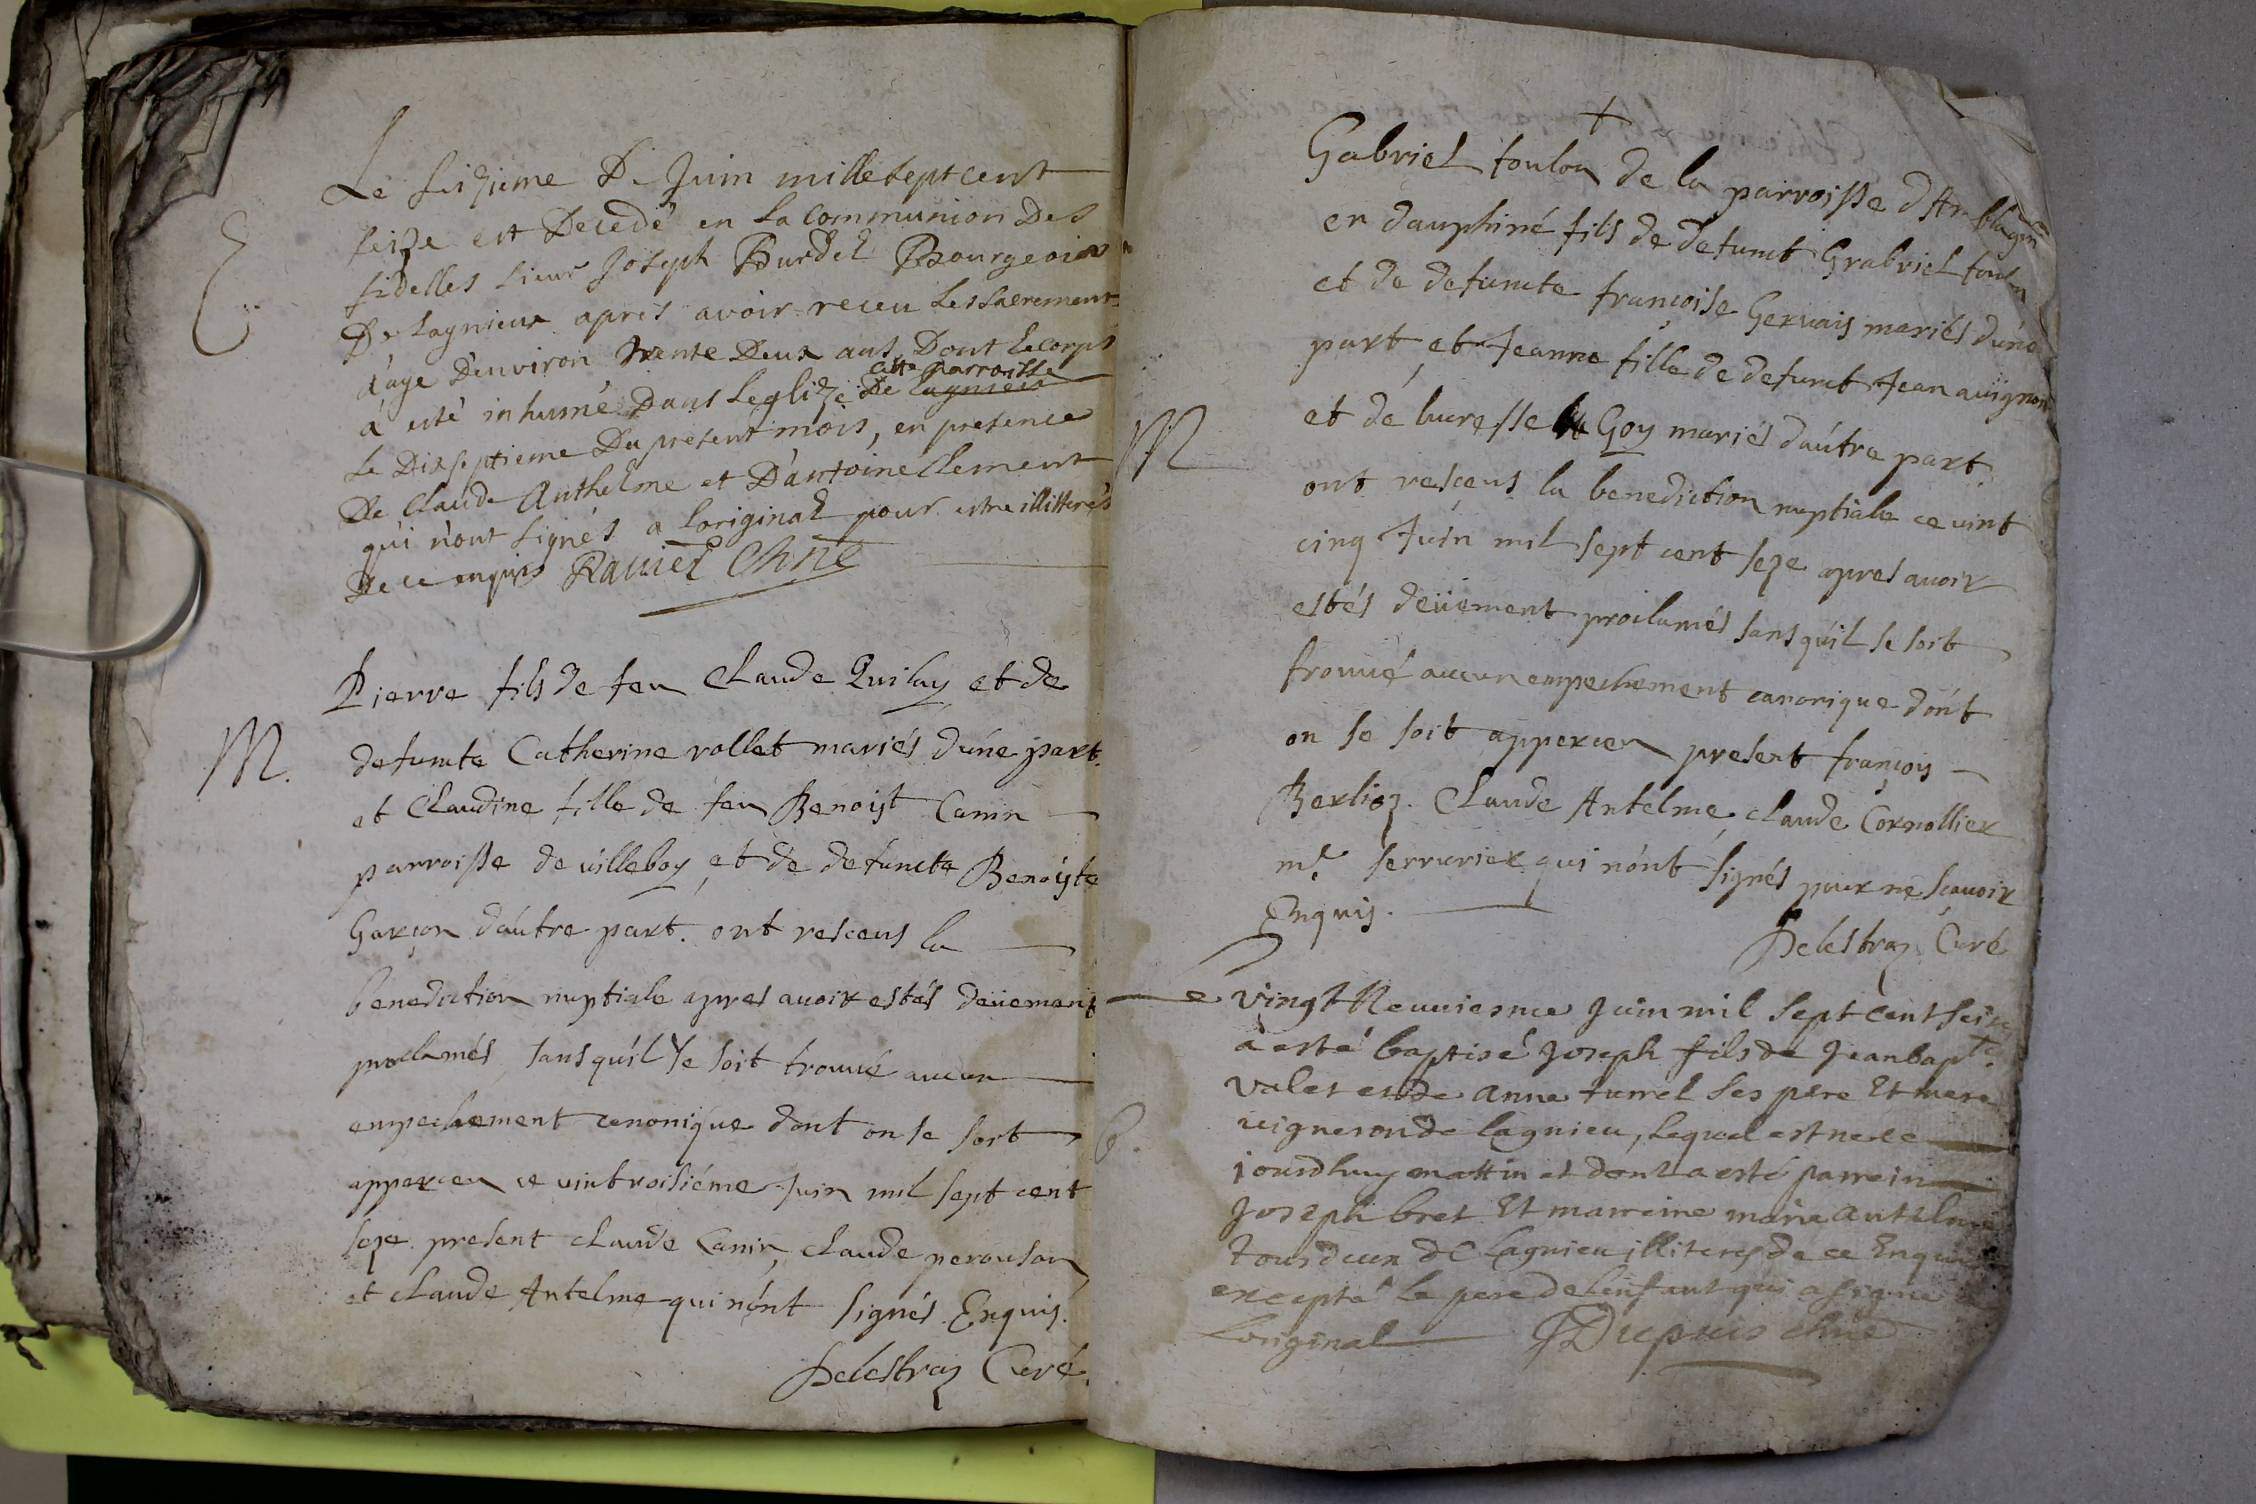 Le seizieme De Juin mille sept cent
seize est Decedé en la communion Des
E
fidelles sieur Joseph Burdet Bourgeois
De Lagnieux apres avoir receu les sacrements
à l'age D'environ trente Deux ans Dont le corps
cette parroisse
à esté inhumé Dans l'eglize De Lagnieu
le Dixseptieme Du present mois, en presence
De Claude Anthelme et D'antoine Clement
qui n'ont signés a l'original pour estre illitterés
De ce enquis Ravier
Pierre fils de feu Claude Quilay et de
M.
defuncte Catherine rollet mariés d'une part.
et Claudine fille de feu Benoist Canin
parroisse de villeboy, et de defuncte Benoiste
Garçon d'autre part. ont resceus la
benediction nuptiale apres avoir estés deüement
proclamés, sans qu'il se soit trouvé aucun
empechement canonique dont on se soit
apperceu ce vintroisiéme Juin mil sept cent
seze. present claude Canin, claude perouson,
et claude Antelme qui n'ont signés. Enquis.
Delestraz Curé.
Gabriel toulon de la parroisse d'Amblagnieu
en dauphiné fils de defunct Grabriel toulon
et de defuncte francoise Gervais mariés d'une
part, et Jeanne fille de defunct Jean avignon
et de lucresse Goy mariés d'autre part.
M
ont resceus la benediction nuptiale ce vint
cinq Juin mil sept cent seze apres avoir
estés deüement proclamés sans qu'il se soit
trouvé aucun empechement canonique dont
on se soit apperceu present françois
Berlioz. Claude Antelme, claude Cornollier
me serrurier qui n'ont signés pour ne sçavoir
Enquis.
Delestraz Curé
Le vingt Neuviesme Juin mil sept cent seize
a esté baptisé Joseph fils de Jean bapte.
valet et de anne turrel ses pere Et mere
vigneron de lagnieu, lequel est ne ce
B.
jourdhuy mattin et dont a esté parrein
Joseph bret Et marreine marie antelme
tous deux de lagnieu illiterés de ce Enquis
excepté le pere de l'enfant qui a signé a
Loriginal Dupuis